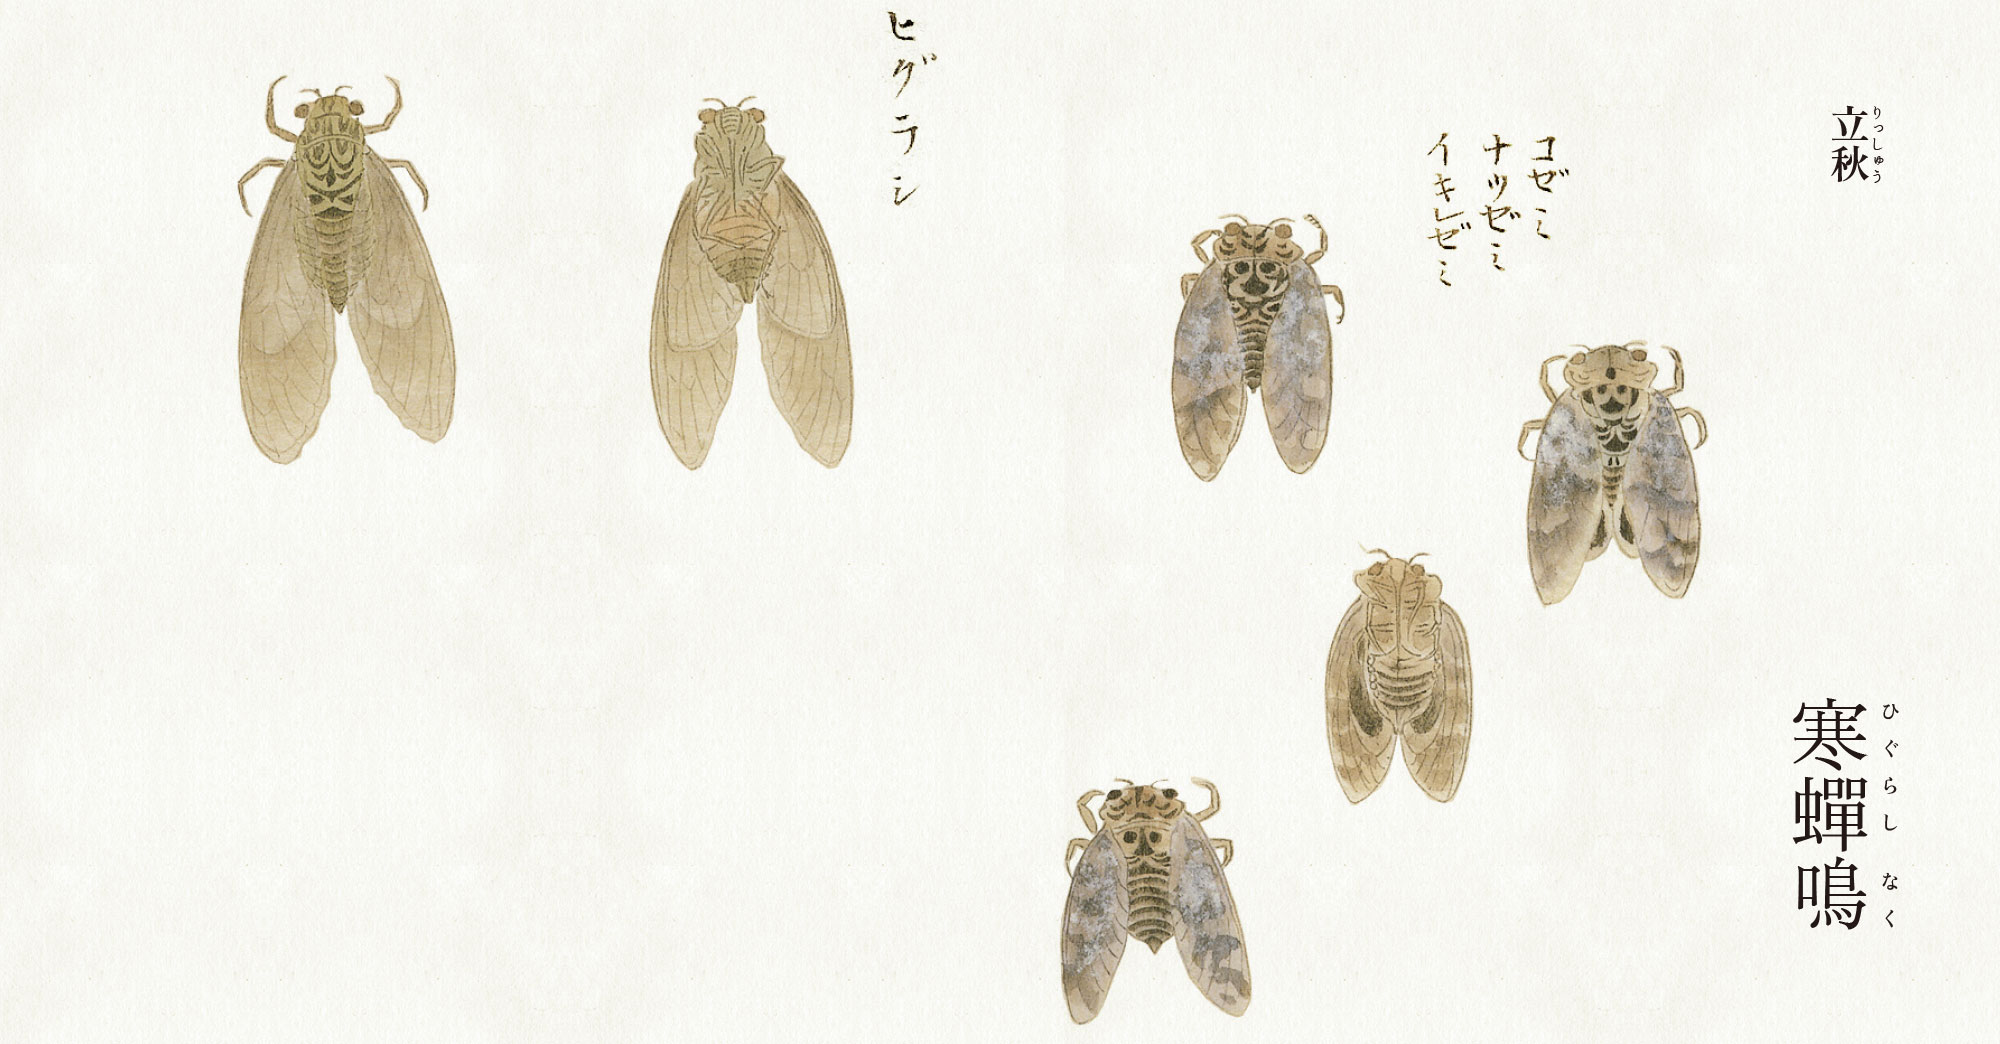 立秋
りっしゅう
寒蟬鳴
ひぐらしなく
コゼミ
ナツゼミ
イキレゼミ
ヒグラシ